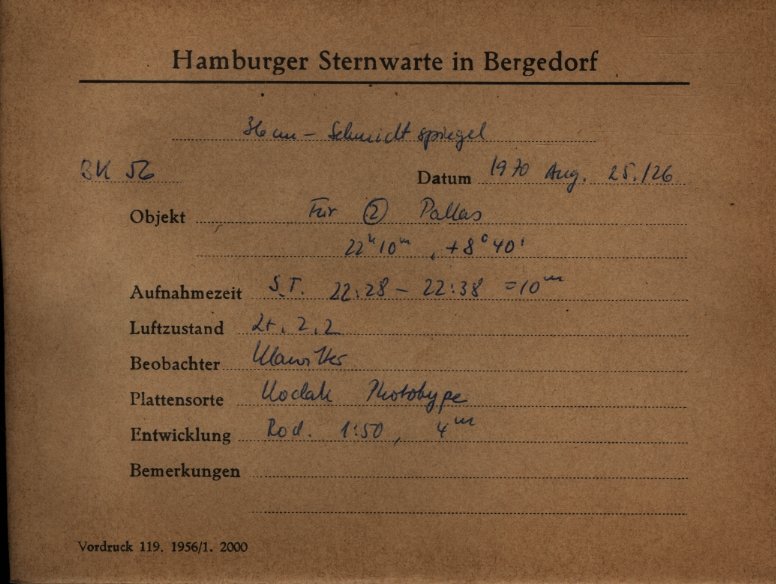 Hamburger Sternwarte in Bergedorf
36 cm - Schmidtspiegel
BK 56 Datum 1970 Aug. 25./26
Objekt Für ② Pallas
22ʰ10ᵐ, +8°40'
Aufnahmezeit S.T. 22:28 - 22:38 = 10ᵐ
Luftzustand 2+, 2, 2
Beobachter Klawitter
Plattensorte Kodak Phototype
Entwicklung Rod. 1:50, 4ᵐ
Bemerkungen
Vordruck 119. 1956/1. 2000